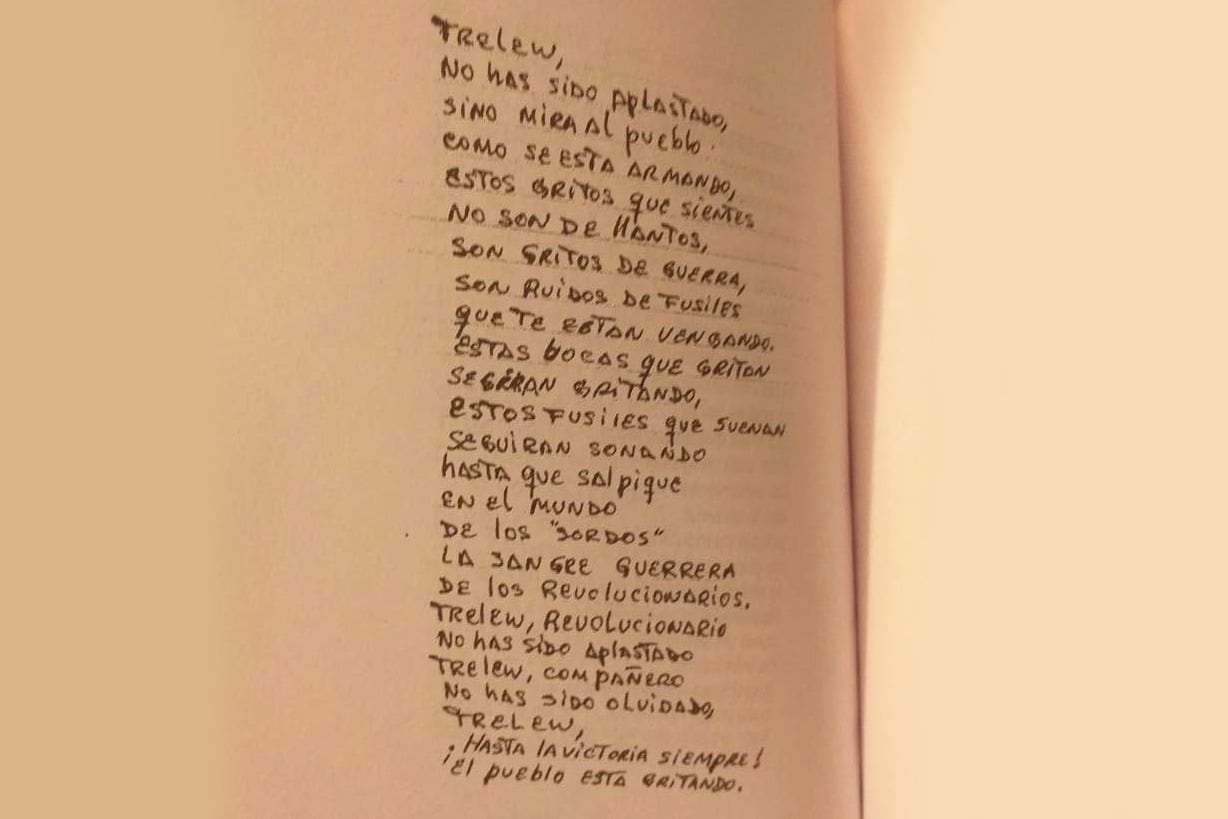 TRelew,
NO hAS SIDO APlASTADO,
SINO MIRA Al pueblo.
COMO SE ESTA ARMANDO,
ESTOS GRITOS que SIENTES
NO SON DE llANTOS,
SON GRITOS DE GUERRA,
SON RUIDOS DE FUSIlES
que TE ESTAN VENGANDO.
ESTAS bOCAS que GRITAN
SEGIRAN GRITANDO,
ESTOS FUSIlES que SUENAN
SEGUIRAN SONANDO
hASTA que SAlpique
EN El MUNDO
DE los "SORDOS"
LA SANGRE GUERRERA
DE los REVolucioNARIOS.
TRelew, REVOLUCIONARIO
NO hAS SIDO APlASTADO
TRelew, COMPAÑERO
NO hAS SIDO OLVIDADO,
TRELEW,
¡HASTA lA VICTORIA SIEMPRE!
¡El pueblo ESTA GRITANDO.